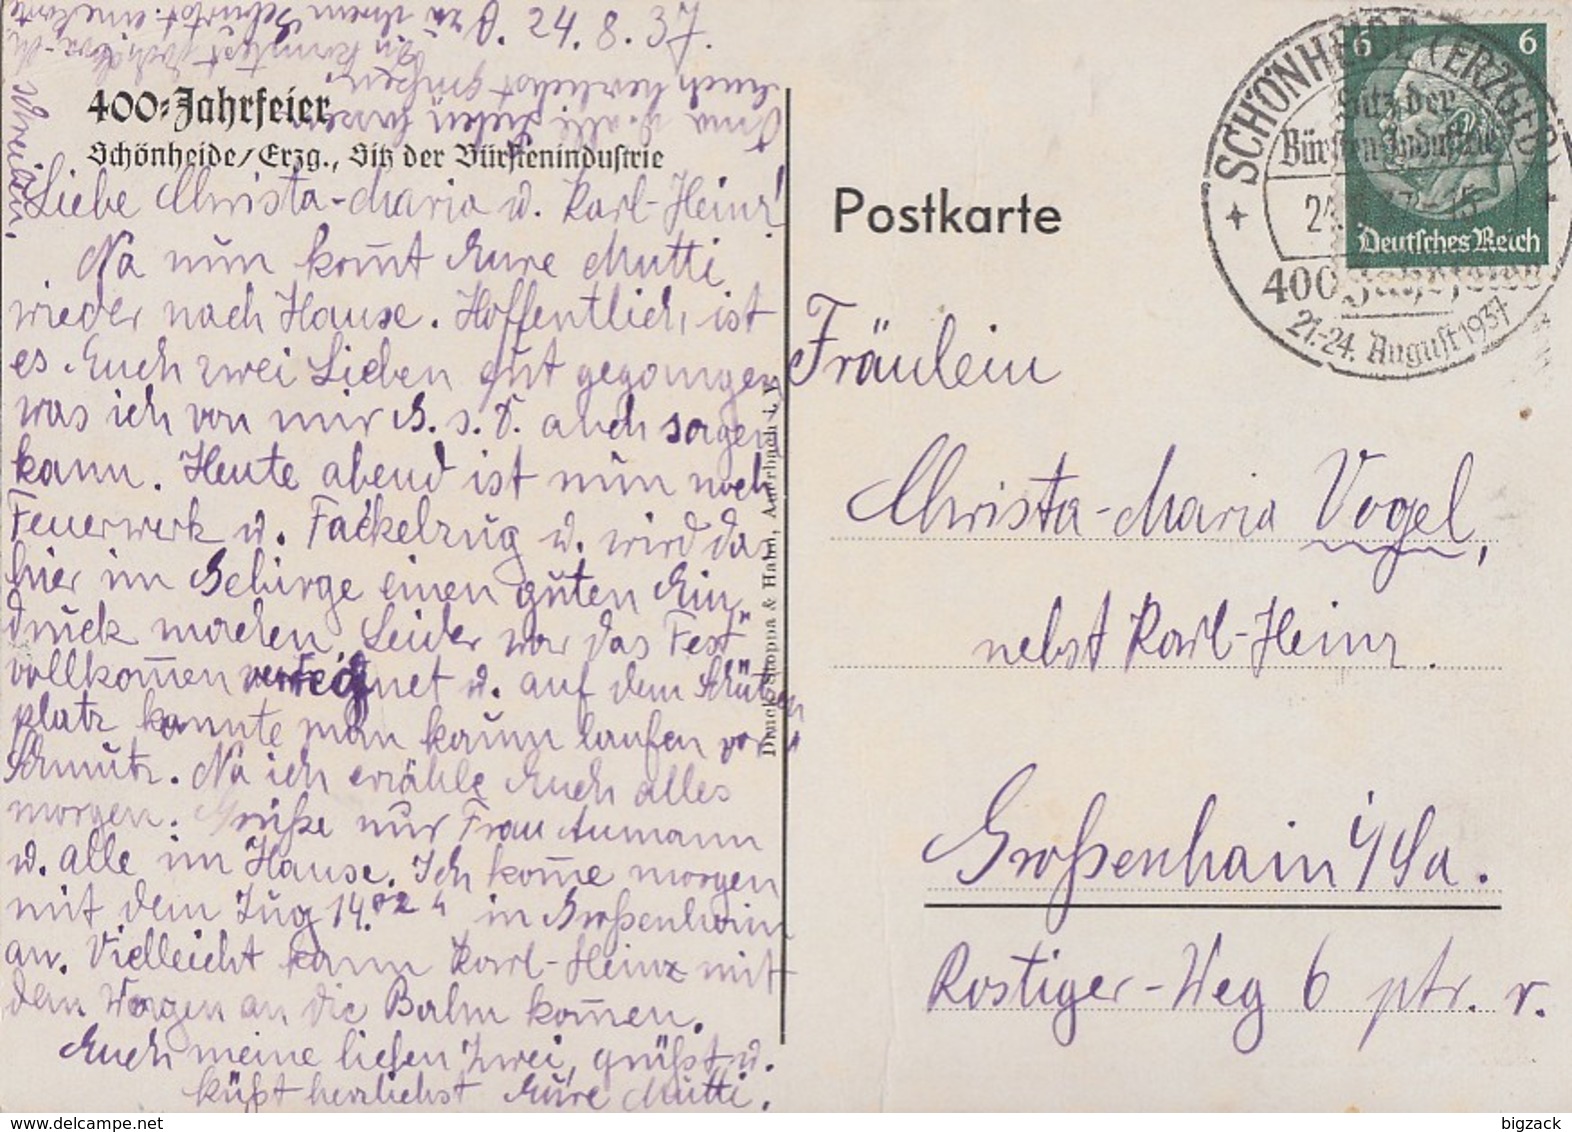 O. 24. 8. 37.
400=Jahrfeier
Schönheide/Erzg., Sitz der Bürstenindustrie
Liebe Christa-Maria u. Karl-Heinz!
Na nun kom̄t Eure Mutti
wieder nach Hause. Hoffentlich ist
es Euch zwei Lieben gut gegangen
was ich von mir G. s. D. auch sagen
kann. Heute abend ist nun noch
Feuerwerk u. Fackelzug u. wird da
hier im Gebirge einen guten Ein
druck machen. Leider war das Fest
vollkom̄en verregnet u. auf dem Schützen
platz konnte man kaum laufen vor
Schmutz. Na ich erzähle Euch alles
morgen. Grüße nur Frau Aumann
u. alle im Hause. Ich kom̄e morgen
mit dem Zug 14.02 h in Großenhain
an. Vielleicht kann Karl-Heinz mit
dem Wagen an die Bahn kom̄en.
Euch meine lieben Zwei, grüßt u.
küßt herzlichst Eure Mutti.
Oma u. alle lieben lassen
Euch herzlichst grüßen.
Du kannst doch
zu ihrem Geburtst. eine Karte
schreiben.
Druck: Stoppa & Hahn, Auerbach i. V.
Postkarte
SCHÖNHEIDE (ERZGEB)
Sitz der
Bürsten-Industrie
400 Jahrfeier
21.-24. August 1937
6 6
Deutsches Reich
Fräulein
Christa-Maria Vogel,
nebst Karl-Heinz.
Großenhain i/Sa.
Rostiger-Weg 6 ptr. r.
delcampe.net
bigzack